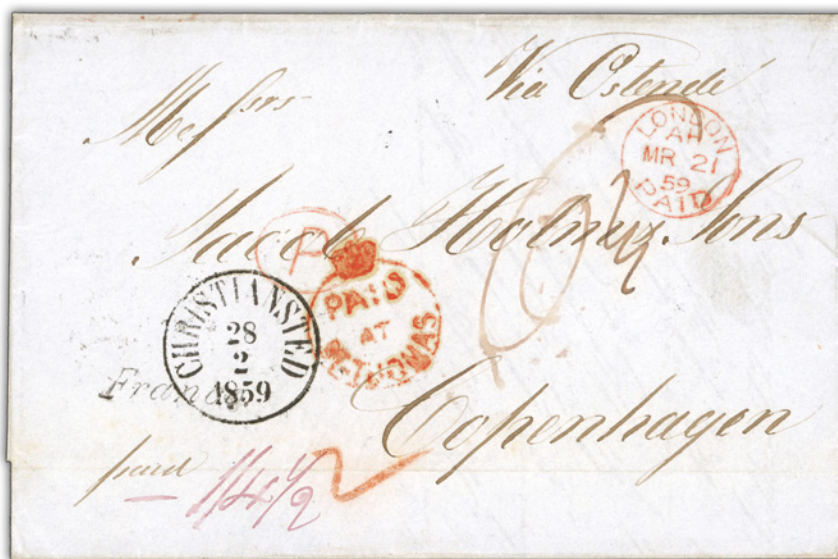 Messrs
Via Ostende
LONDON
MR 21
59
PAID
Jacob Holmer Sons
P
PAID
AT
ST. THOMAS
CHRISTIANSTED
28
2
1859
Franco
Copenhagen
paid
1/4½